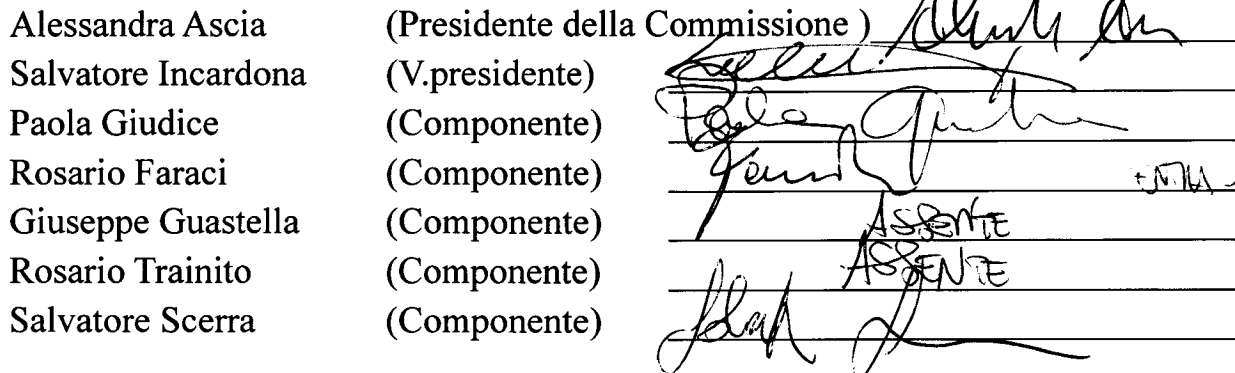 Alessandra Ascia (Presidente della Commissione )
Salvatore Incardona (V.presidente)
Paola Giudice (Componente)
Rosario Faraci (Componente)
Giuseppe Guastella (Componente) ASSENTE
Rosario Trainito (Componente) ASSENTE
Salvatore Scerra (Componente)